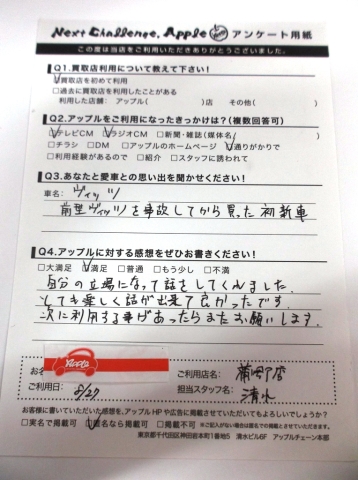 Next Challenge, Apple アンケート用紙
この度は当店をご利用いただきありがとうございました。
Q1.買取店利用について教えて下さい!
☑買取店を初めて利用
□過去に買取店を利用したことがある
利用した店舗: アップル( )店 その他( )
Q2.アップルをご利用になったきっかけは?(複数回答可)
☑テレビCM ☑ラジオCM □新聞・雑誌(媒体名 )
□チラシ □DM □アップルのホームページ ☑通りがかりで
□利用経験があるので □紹介 □スタッフに誘われて
Q3.あなたと愛車との思い出を聞かせください!
車名: ヴィッツ
前型ヴィッツを事故してから買った初新車
Q4.アップルに対する感想をぜひお書きください!
□大満足 ☑満足 □普通 □もう少し □不満
自分の立場になって話をしてくれました。
とても楽しく話が出来て良かったです。
次に利用する事があったらまたお願いします。
お名
Apple
ご利用店名: 蒲田店
ご利用日: 5/27
担当スタッフ名: 清水
お客様に書いていただいた感想を、アップルHPや広告に掲載させていただいてもよろしいでしょうか?
□実名で掲載可 ☑匿名なら掲載可 □掲載不可 ※ご記入がない場合は匿名での掲載とさせていただきます。
東京都千代田区神田岩本町1番地5 清水ビル6F アップルチェーン本部